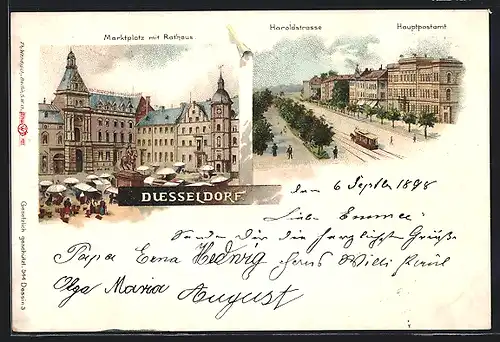 Marktplatz mit Rathaus
Haroldstrasse
Hauptpostamt
DUESSELDORF.
den 6 Septb 1898
Liebe Emmee
Sende Dir die herzlichste Grüße
Papa Erna Hedwig Hans Willi Paul
Olga Maria August
Gesetzlich geschützt. 544 Dessin 3